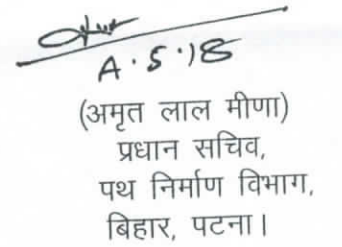 A.5.18
(अमृत लाल मीणा)
प्रधान सचिव,
पथ निर्माण विभाग,
बिहार, पटना।